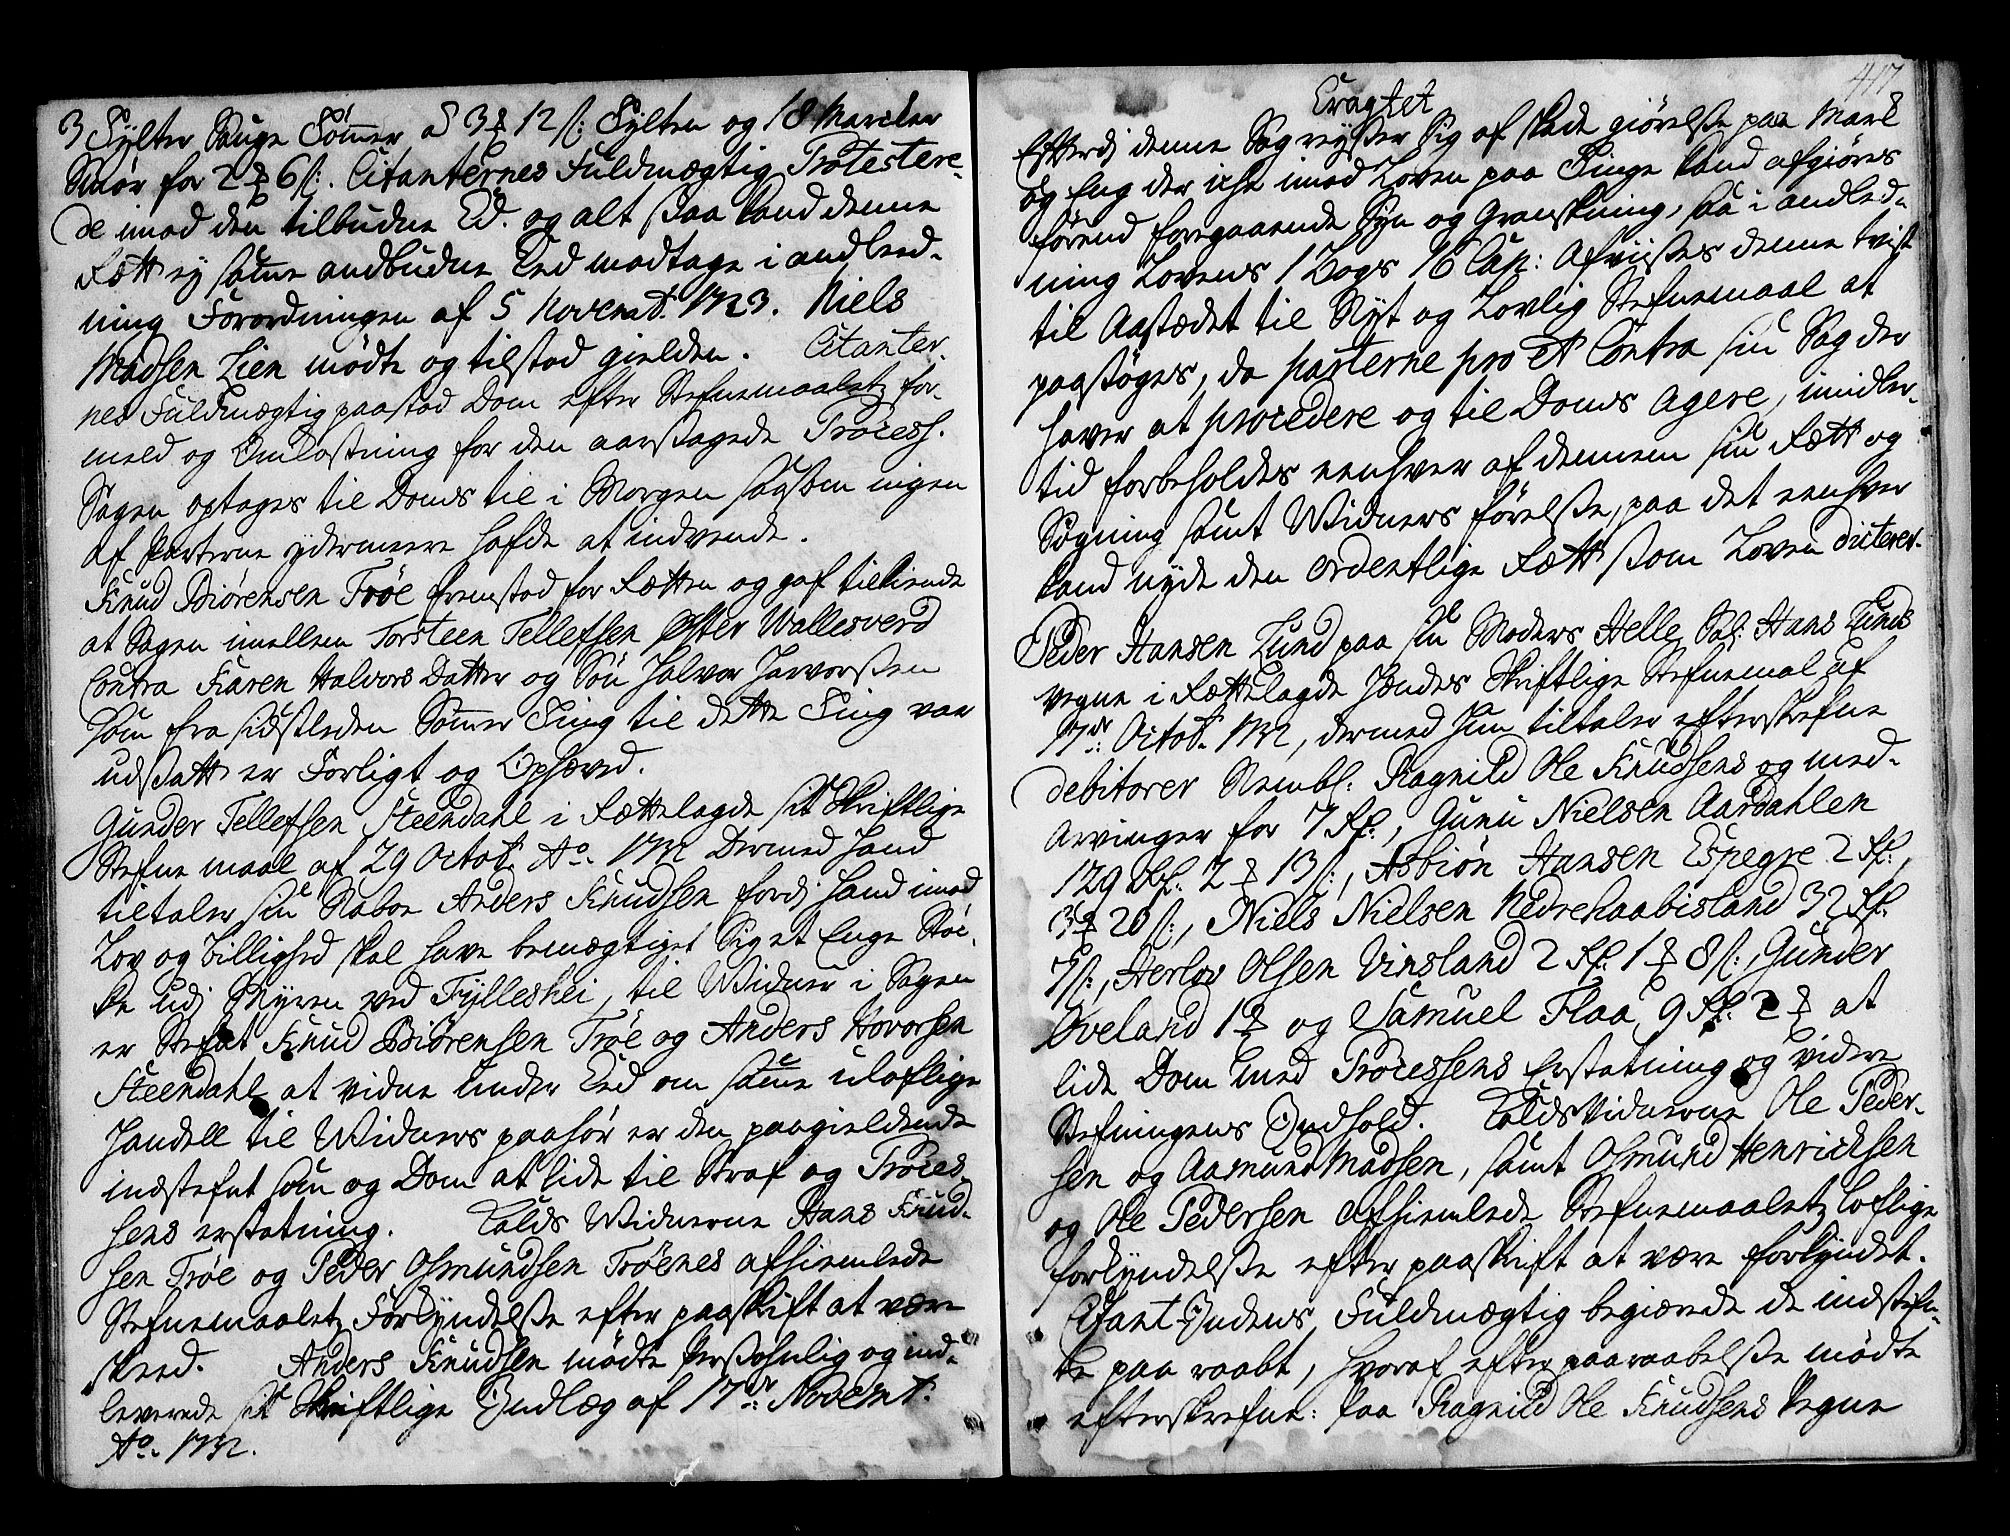 3 Tylter Sauge Tømmer a 3 ₰ 12 s: Tylten og 18 Marcker
Smør for 2 ₰ 6 s:. Citanternes Fuldmægtig Protestere-
de imod den tilbudne Ed. og alt saa kand denne
Rætt ey samme andbudne Eed modtage i andleed-
ning Forordningen af 5 Novembr. 1723. Niels
Madsen Lien mødte og tilstod gielden. Citanter-
nes Fuldmægtig paastod Dom efter Stefnemaaletz for-
meld og Omkostning for den aarsagede Process.
Sagen optages til Doms til i Morgen saasom ingen
af Parterne ydermeere hafde at indvende.
Knud Biørensen Trøe fremstod for Rætten og gaf tilkiende
at Sagen imellem Torsteen Tellefsen Øster Wallesverd
Contra Karen Halvors Datter og Søn Halvor Harvorssen
som fra sidstleden Sommer Ting til dette Ting var
udsatt er Forligt og Ophæved.
Gunder Tellefsen Steendahl i Rættelagde sit Skriftlige
Stefne maal af 29 Octob. Ao. 1732 Dermed hand
tiltaler sin Naboe Anders Knudsen fordj hand imod
Lov og billighed skal have bemægtiget Sig et Enge Støc-
ke udj Myren ved Fylleshei, til Widner i Sagen
er Stefnt Knud Biörensen Trøe og Anders Hovorsen
Steendahl at vidne under Eed om samme uloflige
Handell til Widners paahør er den paagieldende
indstefnt som og Dom at lide til Straf og Proces-
sens erstatning. Kalds Widnerne Hans Knud-
sen Trøe og Peder Osmundsen Trøenes afhiemlede
Stefnemaaletz Forkyndelse efter paaskrift at være
skeed. Anders Knudsen mødte Persohnlig og ind-
leverede sit Skriftlige Indlæg af 17de Novembr:
Ao. 1732.
417
Eragtet
Efterdj denne Sag reyser sig af skade giørelse paa Mark
og Eng der iche imod Loven paa Tinge kand afgiøres
førend foregaaende Syn og Granskning, saa i andled-
ning Lovens 1 Bogs 16 Cap: Afviises denne tvist
til Aastædet til Nyt og Lovlig Stefnemaal at
paasøges, da parterne pro et Contra sin Sag der
haver at procedere og til Doms Agere, imidler-
tid forbeholdes eenhver af dennem sin Rætt og
Søgning samt Widners førelse, paa det eenhver
kand nyde den ordentlige Rætt som Loven dicterer.
Peder Hansen Lund paa sin Moders Helle Sal: Hans Lunds
vegne i Rættelagde hendes Skriftlige Stefnemal af
17de: Octob. 1732, dermed hun tiltaler efterskrefne
debitorer Nembl: Ragnild Ole Knudsens og med-
arvinger for 7 Rd:, Gunu Nielsen Aardahlen
129 Rd: 2 ₰ 13 s:, Asbiøn Hansen Espegre 2 Rd:,
3 ₰ 20 s:, Niels Nielsen Nedrehaabisland 32 Rd.
7 s:, Herlov Olsen Vinsland 2 Rd. 1 ₰ 8 s:, Gunder
Oveland 1 ₰ og Samuel Flaa 9 Rd: 2 ₰ at
lide Dom med Processens Erstatning og videre
Stefningens Indhold. Kalds Vidnerne Ole Peder-
sen og Aamund Madsen, samt Osmund Henricksen
og Ole Pedersen afhiemlede Stefnemaaletz loflige
forkyndelse efter paaskrift at være forkyndet.
Citant Indens Fuldmægtig begiærede de indstefn-
te paa raabt, hvoraf efter paaraabelse mødte
efterskrefne: Paa Ragnild Ole Knudsens Vegne